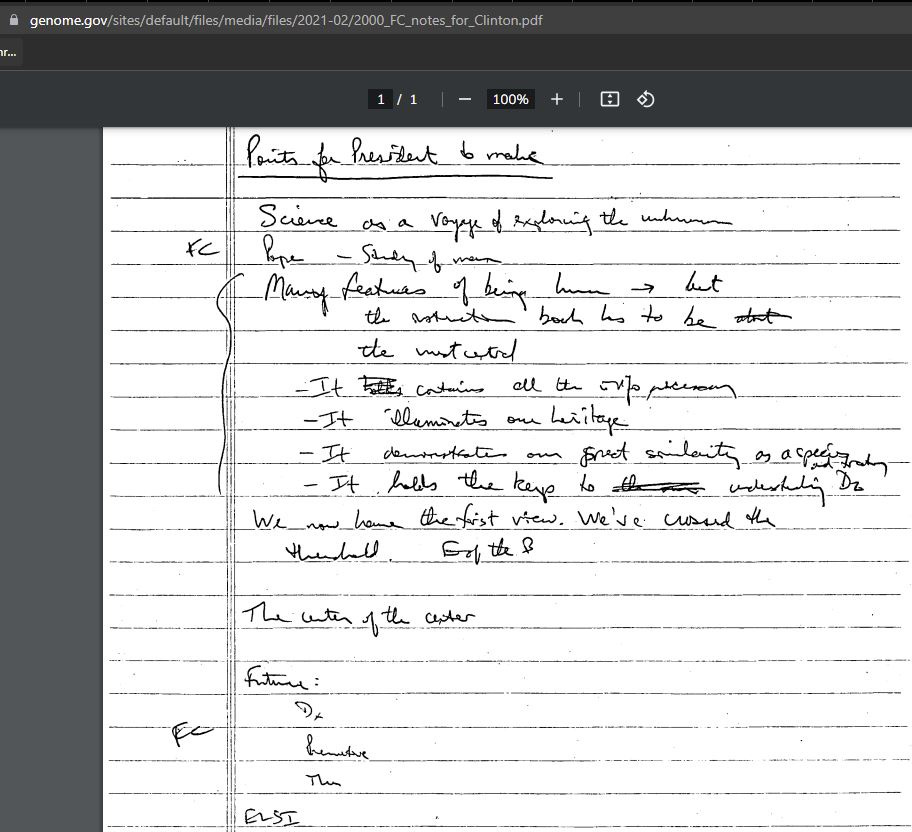 genome.gov/sites/default/files/media/files/2021-02/2000_FC_notes_for_Clinton.pdf
nr...
1 / 1 100%
Points for President to make
Science as a voyage of exploring the unknown
FC Pope – Study of man
Many features of being human → but
the instruction book has to be
the most central
– It contains all the info necessary
– It illuminates our heritage
– It demonstrates our great similarity as a species
– It holds the keys to understanding and treating Dz
We now have the first view. We've crossed the
threshold. E of the B
The center of the center
Future:
Dx
FC Preventive
Thx
ELSI